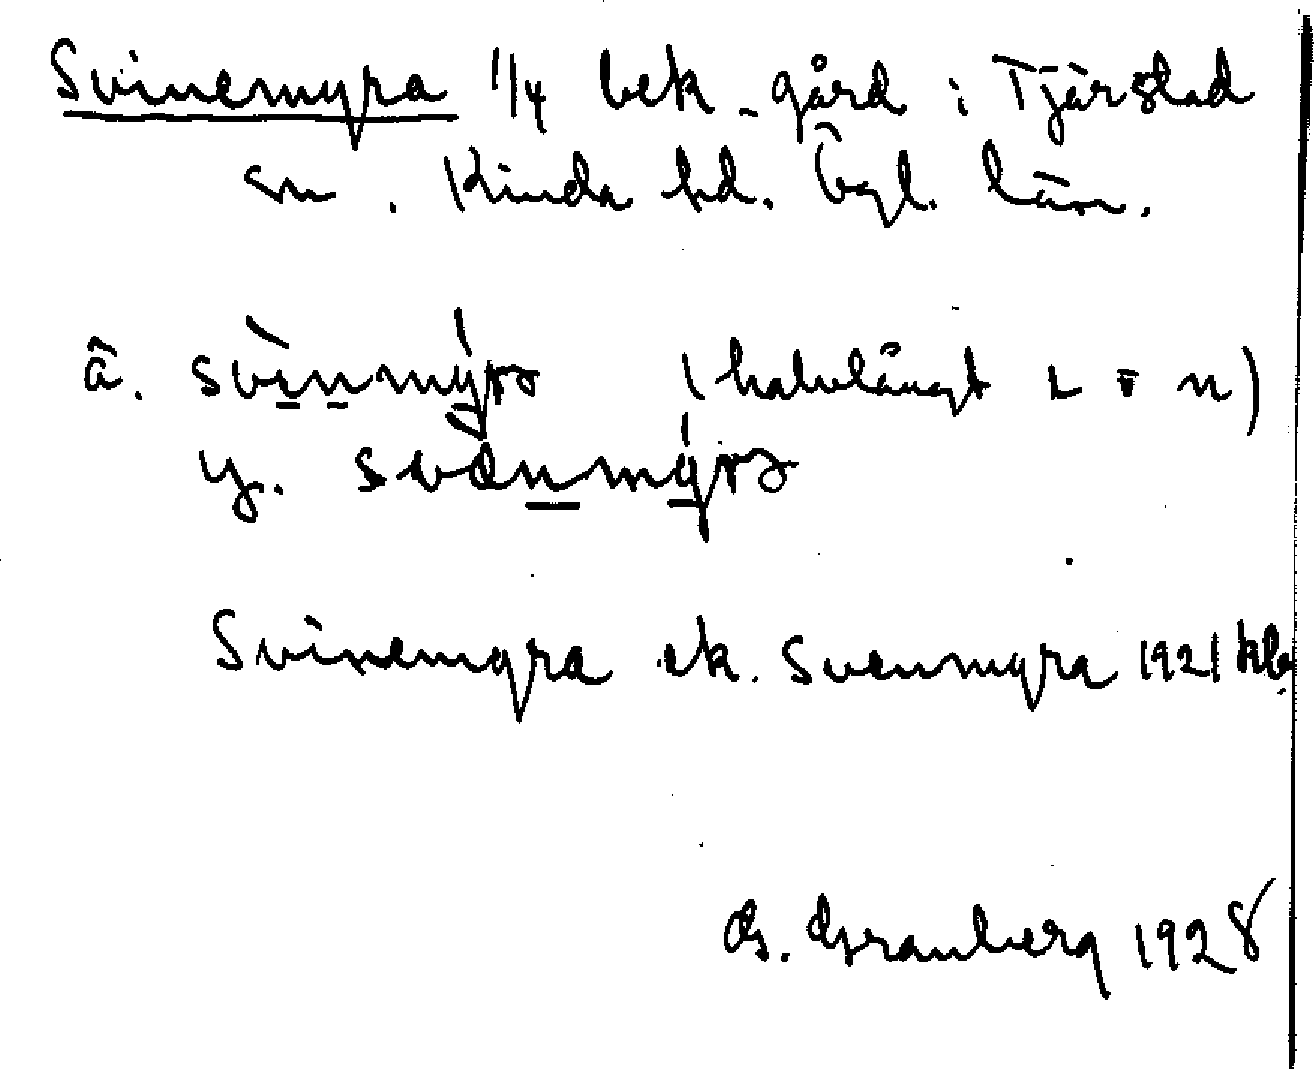 Svinemyra 1/4 bek. gård i Tjärstad
sn. Kinda hd. Ögl. län.
ä. svìnmýrɔ (halvlångt ɩ o n)
y. svænmýrɔ
Svinemyra ek. Svenmyra 1921 kba
G. Granberg 1928